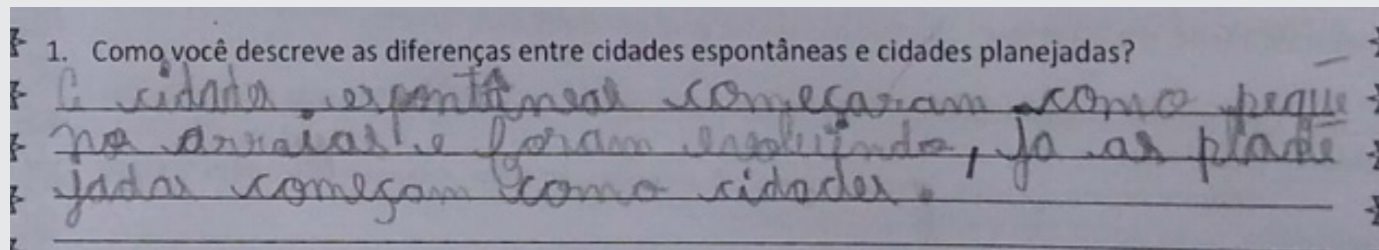 1. Como você descreve as diferenças entre cidades espontâneas e cidades planejadas?
cidades espontâneas começaram como peque
nos arraiais e foram evoluindo, ja as plane
jadas começam como cidades.